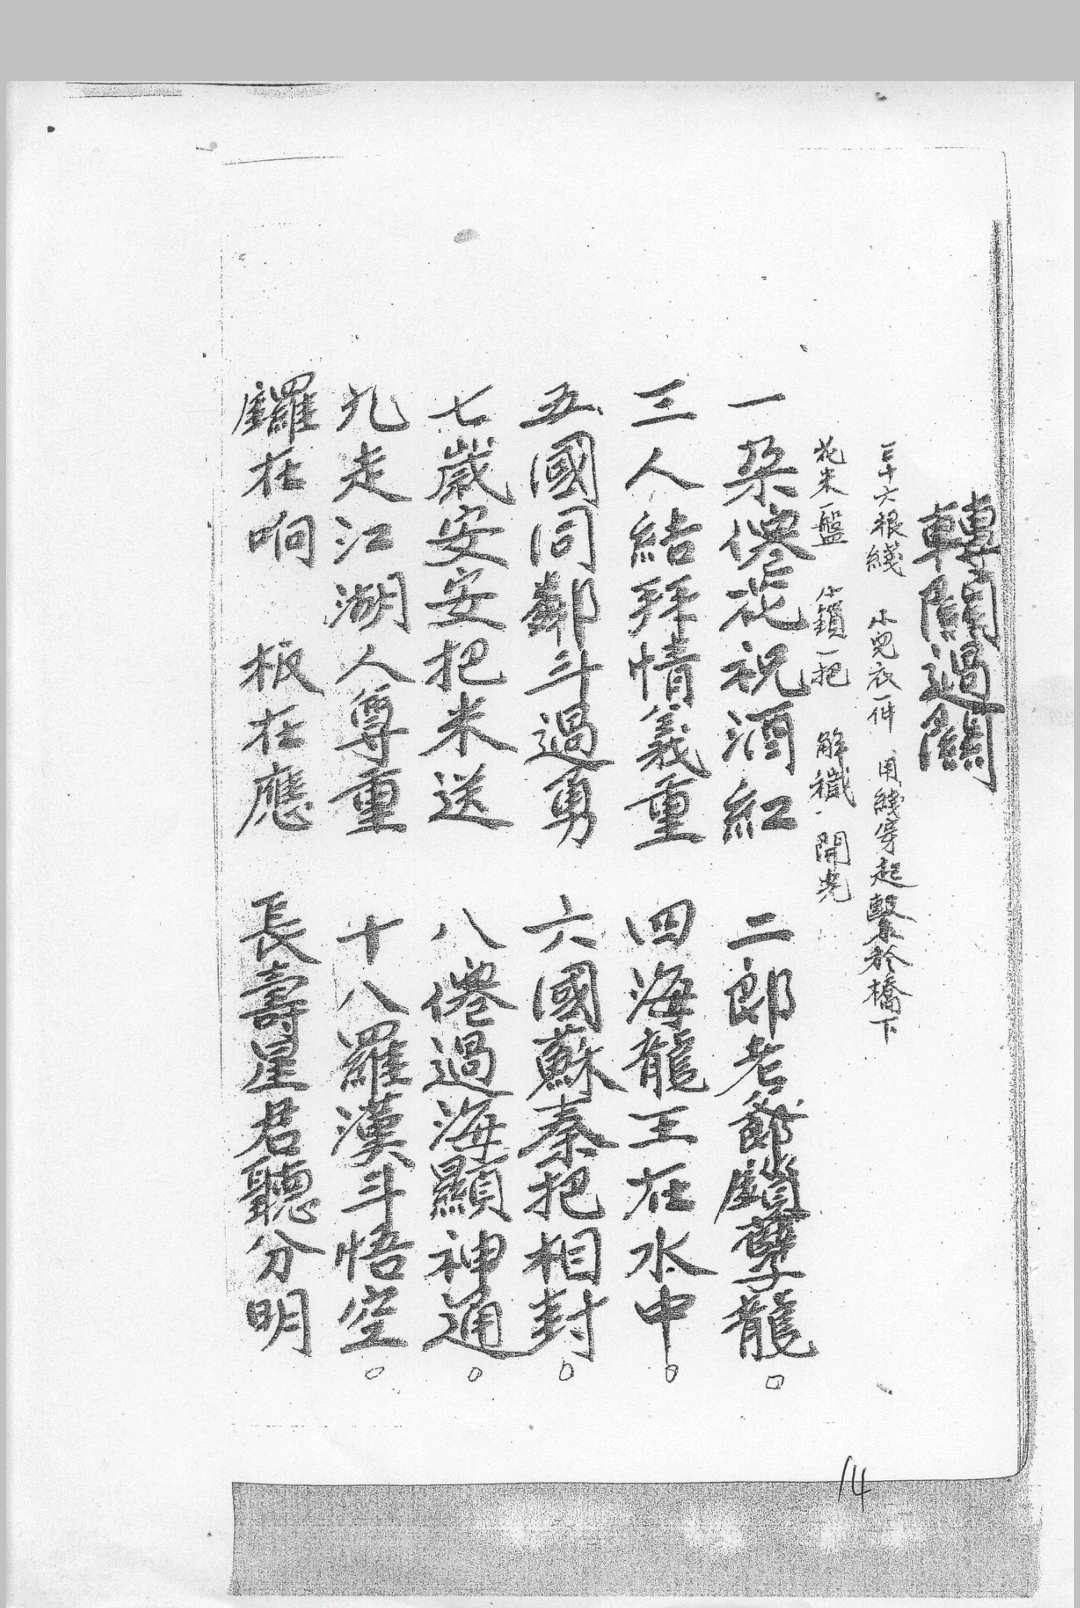 轉關過關
三十六根綫 小兒衣一件 用綫穿起繫於橋下
花米一盤 小鎖一把 解禨 開光
一朶僊花祝酒紅 二郎老爺鎖孽龍。
三人結拜情義重 四海龍王在水中。
五國同鄰斗過勇 六國蘇秦把相封。
七歲安安把米送 八僊過海顯神通。
九走江湖人尊重 十八羅漢斗悟空。
鑼在响 板在應 長壽星君聽分明
14